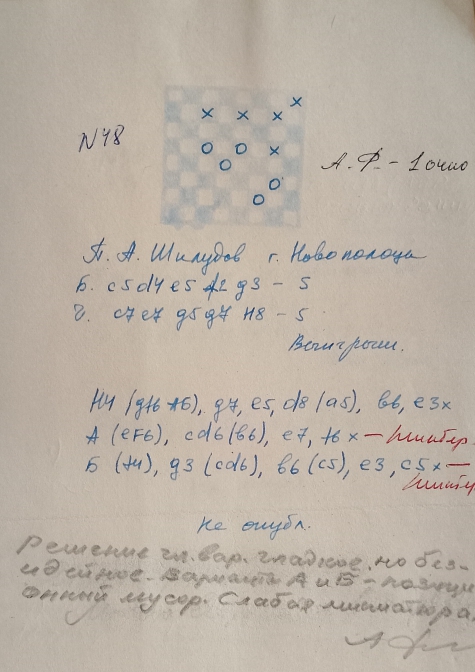 N48
А. Ф. - 1 очко
П. А. Шклудов г. Новополоцк
Б. c5 d4 e5 f2 g3 - 5
Ч. c7 e7 g5 g7 H8 - 5
Выигрыш.
H4 (gf6 f6), g7, e5, d8 (a5), b6, e3x
A (ef6), cd6 (b6), e7, f6 x -
Б (f4), g3 (cd6), b6 (c5), e3, c5x -
Не опубл.
Решение гл. вар. гладкое, но без-
идейное. Варианты А и Б - позици
онный мусор. Слабая миниатюра.